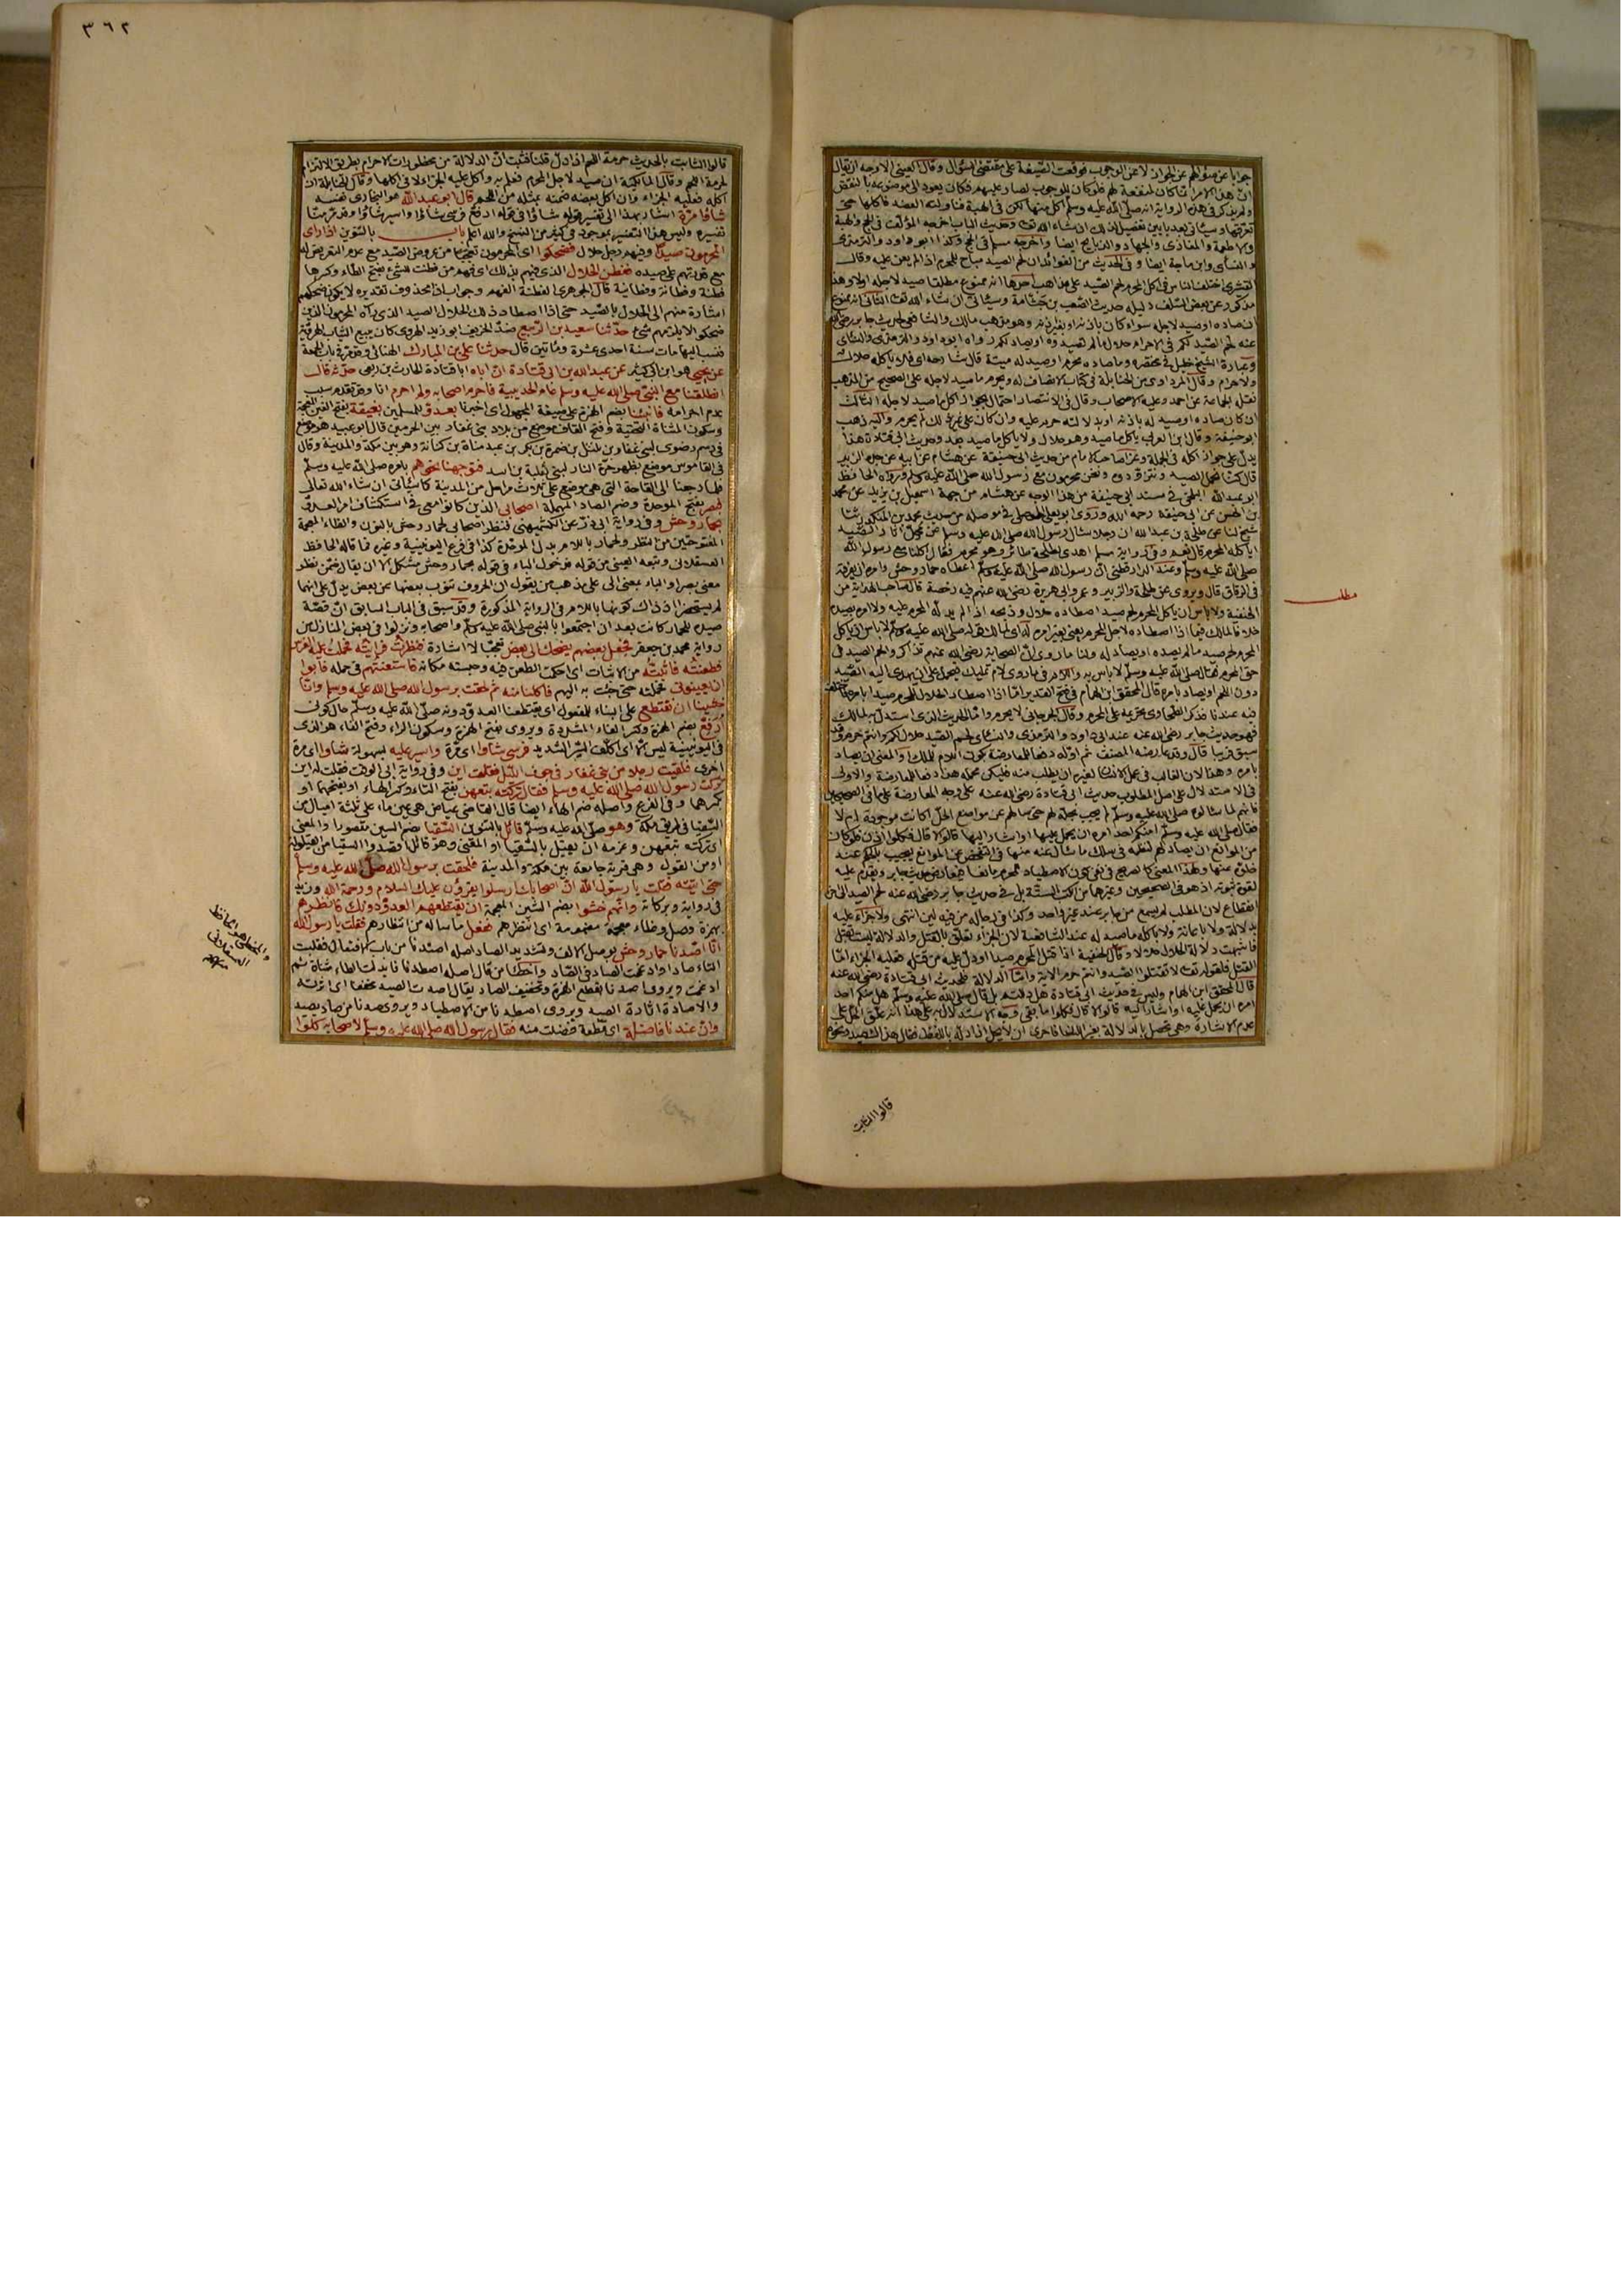 جوابا عن سؤالهم عن الجواز لا عن الوجوب فوقعت الصيغة على مقتضى السؤال وقال العينى الاوجه ان يقال
ان هذا الامر انما كان لمنفعة لهم فلو كان للوجوب لصار عليهم فكان يعود الى موضوعه بالنقض
ولم يذكر فى هذه الرواية انه صلى الله عليه وسلم اكل منها لكن فى الهبة فناولته العضد فاكلها حتى
تعرقها وسيأتى بعد بابين تفصيل لذلك ان شاء الله تعالى وحديث الباب اخرجه المؤلف فى الحج والهبة
والاطعمة والمغازى والجهاد والذبايح ايضا واخرجه مسلم فى الحج وكذا ابو داود والترمذى
والنسائى وابن ماجة ايضا وفى الحديث من الفوائد ان لحم الصيد مباح للمحرم اذا لم يعن عليه وقال
القشيرى اختلف الناس فى اكل المحرم لحم الصيد على مذاهب احدها انه ممنوع مطلقا صيد لاجله اولا وهذا
مذكور عن بعض السلف دليله حديث الصعب بن جثامة وسيأتى ان شاء الله تعالى الثانى انه ممنوع
ان صاده او صيد لاجله سواء كان باذنه او بغير اذنه وهو مذهب مالك والشافعى لحديث جابر رضى الله
عنه لحم الصيد لكم فى الاحرام حلال ما لم تصيدوه او يصاد لكم رواه ابو داود والترمذى والنسائى
وعبارة الشيخ خليل فى مختصره وما صاده محرم او صيد له ميتة قال شارحه اى فلا ياكله حلال
ولا حرام وقال المرداوى من الحنابلة فى كتاب الانصاف له ويحرم ما صيد لاجله على الصحيح من المذهب
نقله الجماعة عن احمد وعليه الاصحاب وقال فى الانتصار احتمال بجواز اكل ما صيد لاجله الثالث
ان كان صاده او صيد له باذنه او بدلالته حرم عليه وان كان على غير ذلك لم يحرم واليه ذهب
ابو حنيفة وقال ابن العربى ياكل ما صيد وهو حلال ولا ياكل ما صيد بعد وحديث ابى قتادة هذا
يدل على جواز اكله فى الجملة وعزا صاحب الامام من حديث ابى حنيفة عن هشام عن ابيه عن جده الزبير
قال كنا نحمل الصيد ونتزوده ونحن محرمون مع رسول الله صلى الله عليه وسلم ورواه الحافظ
ابو عبد الله البلخى فى مسند ابى حنيفة من هذا الوجه عن هشام من جهة اسمعيل بن يزيد عن محمد
بن الحسن عن ابى حنيفة رحمه الله وروى ابو يعلى الموصلى فى موصله من حديث محمد بن المنكدر ثنا
شيخ لنا عن طلحة بن عبد الله ان رجلا سأل رسول الله صلى الله عليه وسلم عن محل اثار الصيد
اياكله المحرم قال نعم وفى رواية مسلم اهدى لطلحة طائر وهو محرم فقال اكلنا مع رسول الله
صلى الله عليه وسلم وعند الدارقطنى ان رسول الله صلى الله عليه وسلم اعطاه حمار وحش وامره ان يفرقه
فى الرفاق قال ويروى عن طلحة والزبير وعمر وابى هريرة رضى الله عنهم فيه رخصة قال صاحب الهداية من
الحنفية ولا باس ان ياكل المحرم لحم صيد اصطاده حلال وذبحه اذا لم يدله المحرم عليه ولا امره بصيده
خلافا لمالك فيما اذا اصطاده لاجل المحرم يعنى بغير امره له اى لمالك قوله صلى الله عليه وسلم لا باس ان ياكل
المحرم لحم صيد ما لم يصده او يصاد له ولنا ما روى ان الصحابة رضى الله عنهم تذاكروا لحم الصيد فى
حق المحرم فقال صلى الله عليه وسلم لا باس به واللام فيما روى لام تمليك فيحمل على ان يهدى اليه الصيد
دون اللحم او يصاد بامره قال المحقق ابن الهمام فى فتح القدير اما اذا اصطاد الحلال للمحرم صيدا بامره اختلف
فيه عندنا فذكر الطحاوى تحريمه على المحرم وقال الجرجانى لا يحرم واما الحديث الذى استدل به لمالك
فهو حديث جابر رضى الله عنه عند ابى داود والترمذى والنسائى لحم الصيد حلال لكم وانتم حرم وقد
سبق قريبا قال وقد عارضه المصنف ثم اوله دفعا للمعارضة بكون اللام للملك والمعنى ان يصاد
بامره وهذا لان الغالب فى عمل الانسان لغيره ان يطلب منه فليكن محمله هذا دفعا للمعارضة والاولى
فى الاستدلال على اصل المطلوب حديث ابى قتادة رضى الله عنه على وجه المعارضة على ما فى الصحيحين
فانهم لما سألوه صلى الله عليه وسلم لم يجب بحله لهم حتى سألهم عن موانع الحل اكانت موجودة ام لا
فقال صلى الله عليه وسلم امنكم احد امره ان يحمل عليها او اشار اليها قالوا لا قال فكلوا اذن فلو كان
من الموانع ان يصاد لهم لنظمه فى سلك ما سأل عنه منها فى التفحص عن الموانع ليجيب بالحكم عند
خلوه عنها وهذا المعنى كالصريح فى نفى كون الاصطياد للمحرم مانعا فيعارض حديث جابر ويقدم عليه
لقوة ثبوته اذ هو فى الصحيحين وغيرهما من الكتب الستة بل فى حديث جابر رضى الله عنه لحم الصيد الخ
انقطاع لان المطلب لم يسمع من جابر عند غير واحد وكذا فى رجاله من فيه لين انتهى ولا جزاء عليه
بدلالة ولا باعانة ولا باكله ما صيد له عند الشافعية لان الجزاء تعلق بالقتل والدلالة ليست بقتل
فاشبهت دلالة الحلال حلالا وقال الحنفية اذا قتل المحرم صيدا او دل عليه من قتله فعليه الجزاء اما
القتل فلقوله تعالى لا تقتلوا الصيد وانتم حرم الاية واما الدلالة فلحديث ابى قتادة رضى الله عنه
قال المحقق ابن الهمام وليس فى حديث ابى قتادة هل دللتم بل قال صلى الله عليه وسلم هل منكم احد
امره ان يحمل عليه او اشار اليه قالوا لا قال فكلوا ما بقى وجه الاستدلال به على هذا انه علق الحل على
عدم الاشارة وهى تحصل بالدلالة بغير اللسان فاحرى ان لا يحل اذا دله باللفظ فقال هذا الصيد ونحوه
مطلب
قالوا الثابت
٣٦٢
قالوا الثابت بالحديث حرمة اللحم اذا دل قلنا فثبت ان الدلالة من محظورات الاحرام بطريق الالتزام
لحرمة اللحم وقال المالكية ان صيد لاجل المحرم فعلم به واكل عليه الجزاء لا فى اكلها وقال الحنابلة ان
اكله فعليه الجزاء وان اكل بعضه ضمنه بمثله من اللحم قال ابو عبد الله هو البخارى نفسه
شأوا مرة اشار بهذا الى تفسير قوله شأوا فى قوله ارفع فرسى شأوا واسير شأوا وقد مر منا
تفسيره وليس هذا التفسير بموجود فى كثير من النسخ والله اعلم باب بالتنوين اذا راى
المحرمون صيدا وفيهم رجل حلال فضحكوا اى المحرمون تعجبا من عروض الصيد مع عدم التعرض له
مع قدرتهم على صيده ففطن الحلال الذى فيهم بذلك اى فهم من فطنت للشئ بفتح الطاء وكسرها
فطنة وفطانة وفطانية قال الجوهرى الفطنة الفهم وجواب اذا محذوف تقديره لا يكون ضحكهم
اشارة منهم الى الحلال بالصيد حتى اذا اصطاد ذلك الحلال الصيد الذى رآه المحرمون الذين
ضحكوا لا يلزمهم شئ حدثنا سعيد بن الربيع ضد الخريف ابو زيد الهروى كان يبيع الثياب الهروية
فنسب اليها مات سنة احدى عشرة ومأتين قال حدثنا على بن المبارك الهنائى وقد مر فى باب الجمعة
عن يحيى هو ابن ابى كثير عن عبد الله بن ابى قتادة ان اباه ابا قتادة الحارث بن ربعى حدثه قال
انطلقنا مع النبى صلى الله عليه وسلم عام الحديبية فاحرم اصحابه ولم احرم انا وقد تقدم سبب
عدم احرامه فانبئنا بضم الهمزة على صيغة المجهول اى اخبرنا بعدو للمسلمين بغيقة بفتح الغين المعجمة
وسكون المثناة التحتية وفتح القاف موضع من بلاد بنى غفار بين الحرمين قال ابو عبيد هو موضع
فى رسم رضوى لبنى غفار بن مليل بن ضمرة بن بكر بن عبد مناة بن كنانة وهو بين مكة والمدينة وقال
فى القاموس موضع بظهر حرة النار لبنى ثعلبة بن اسد فتوجهنا نحوهم بامره صلى الله عليه وسلم
فلما رجعنا الى القاحة التى هى موضع على ثلاث مراحل من المدينة كما سيأتى ان شاء الله تعالى
فبصر بفتح الموحدة وضم الصاد المهملة اصحابى الذين كانوا معى فى استكشاف امر العدو
بحمار وحش وفى رواية ابى ذر عن الكشميهنى فنظر اصحابى لحمار وحش بالنون والظاء المعجمة
المفتوحتين من النظر ولحمار باللام بدل الموحدة كذا فى فرع اليونينية وغيره فما قاله الحافظ
العسقلانى وتبعه العينى من قوله فدخول الباء فى قوله بحمار وحش مشكل الا ان يقال ضمن نظر
معنى بصر او الباء بمعنى الى على مذهب من يقول ان الحروف تنوب بعضها عن بعض يدل على انهما
لم يستحضرا اذ ذاك كونها باللام فى الرواية المذكورة وقد سبق فى الباب السابق ان قصة
صيده للحمار كانت بعد ان اجتمعوا بالنبى صلى الله عليه وسلم واصحابه ونزلوا فى بعض المنازل من
رواية محمد بن جعفر فجعل بعضهم يضحك الى بعض تعجبا لا اشارة فنظرت فرايته فحملت عليه الفرس
فطعنته فاثبته من الاثبات اى احكمت الطعن فيه وحبسته مكانه فاستعنتهم فى حمله فابوا
ان يعينونى فحملته حتى جئت به اليهم فاكلنا منه ثم لحقت برسول الله صلى الله عليه وسلم وانا
خشينا ان نقتطع على البناء للمفعول اى يقتطعنا العدو دونه صلى الله عليه وسلم حال كونى
ارفع بضم الهمزة وكسر الفاء المشددة ويروى بفتح الهمزة وسكون الراء وفتح الفاء هو الذى
فى اليونينية ليس الا اى اكلف السير الشديد فرسى شأوا اى مرة واسير عليه بسهولة شأوا اى مرة
اخرى فلقيت رجلا من بنى غفار فى جوف الليل فقلت اين وفى رواية ابى الوقت فقلت له اين
تركت رسول الله صلى الله عليه وسلم فقال تركته بتعهن بفتح التاء وكسر الهاء او بفتحهما او
بكسرهما وفى الفرع واصله ضم الهاء ايضا قال القاضى عياض هى عين ماء على ثلثة اميال من
السقيا فى طريق مكة وهو صلى الله عليه وسلم قائل بالتنوين السقيا بضم السين مقصورا والمعنى
اى تركته بتعهن وعزمه ان يقيل بالسقيا او المعنى وهو قائل اقصدوا السقيا من القيلولة
او من القول وهى قرية جامعة بين مكة والمدينة فلحقت برسول الله صلى الله عليه وسلم
حتى اتيته فقلت يا رسول الله ان اصحابك ارسلوا يقرؤن عليك السلام ورحمة الله وزيد
فى رواية وبركاته وانهم خشوا بضم الشين المعجمة ان يقتطعهم العدو دونك فانظرهم
بهمزة وصل وظاء معجمة مضمومة اى انتظرهم ففعل ما ساله من انتظارهم فقلت يا رسول الله
انا اصدنا حمار وحش بوصل الالف وتشديد الصاد اصله اصتدنا من باب الافتعال فقلبت
التاء صادا وادغمت الصاد فى الصاد واخطأ من قال اصله اصطدنا فابدلت الطاء مثناة ثم
ادغمت ويروى اصدنا بقطع الهمزة وتخفيف الصاد يقال اصدت الصيد مخففا اى اثرته
والاصادة اثارة الصيد ويروى اصطدنا من الاصطياد ويروى صدنا من صاد يصيد
وان عندنا فاضلة اى قطعة فضلت منه فقال رسول الله صلى الله عليه وسلم لاصحابه كلوا
والمخطئ هو الحافظ
العسقلانى
منه